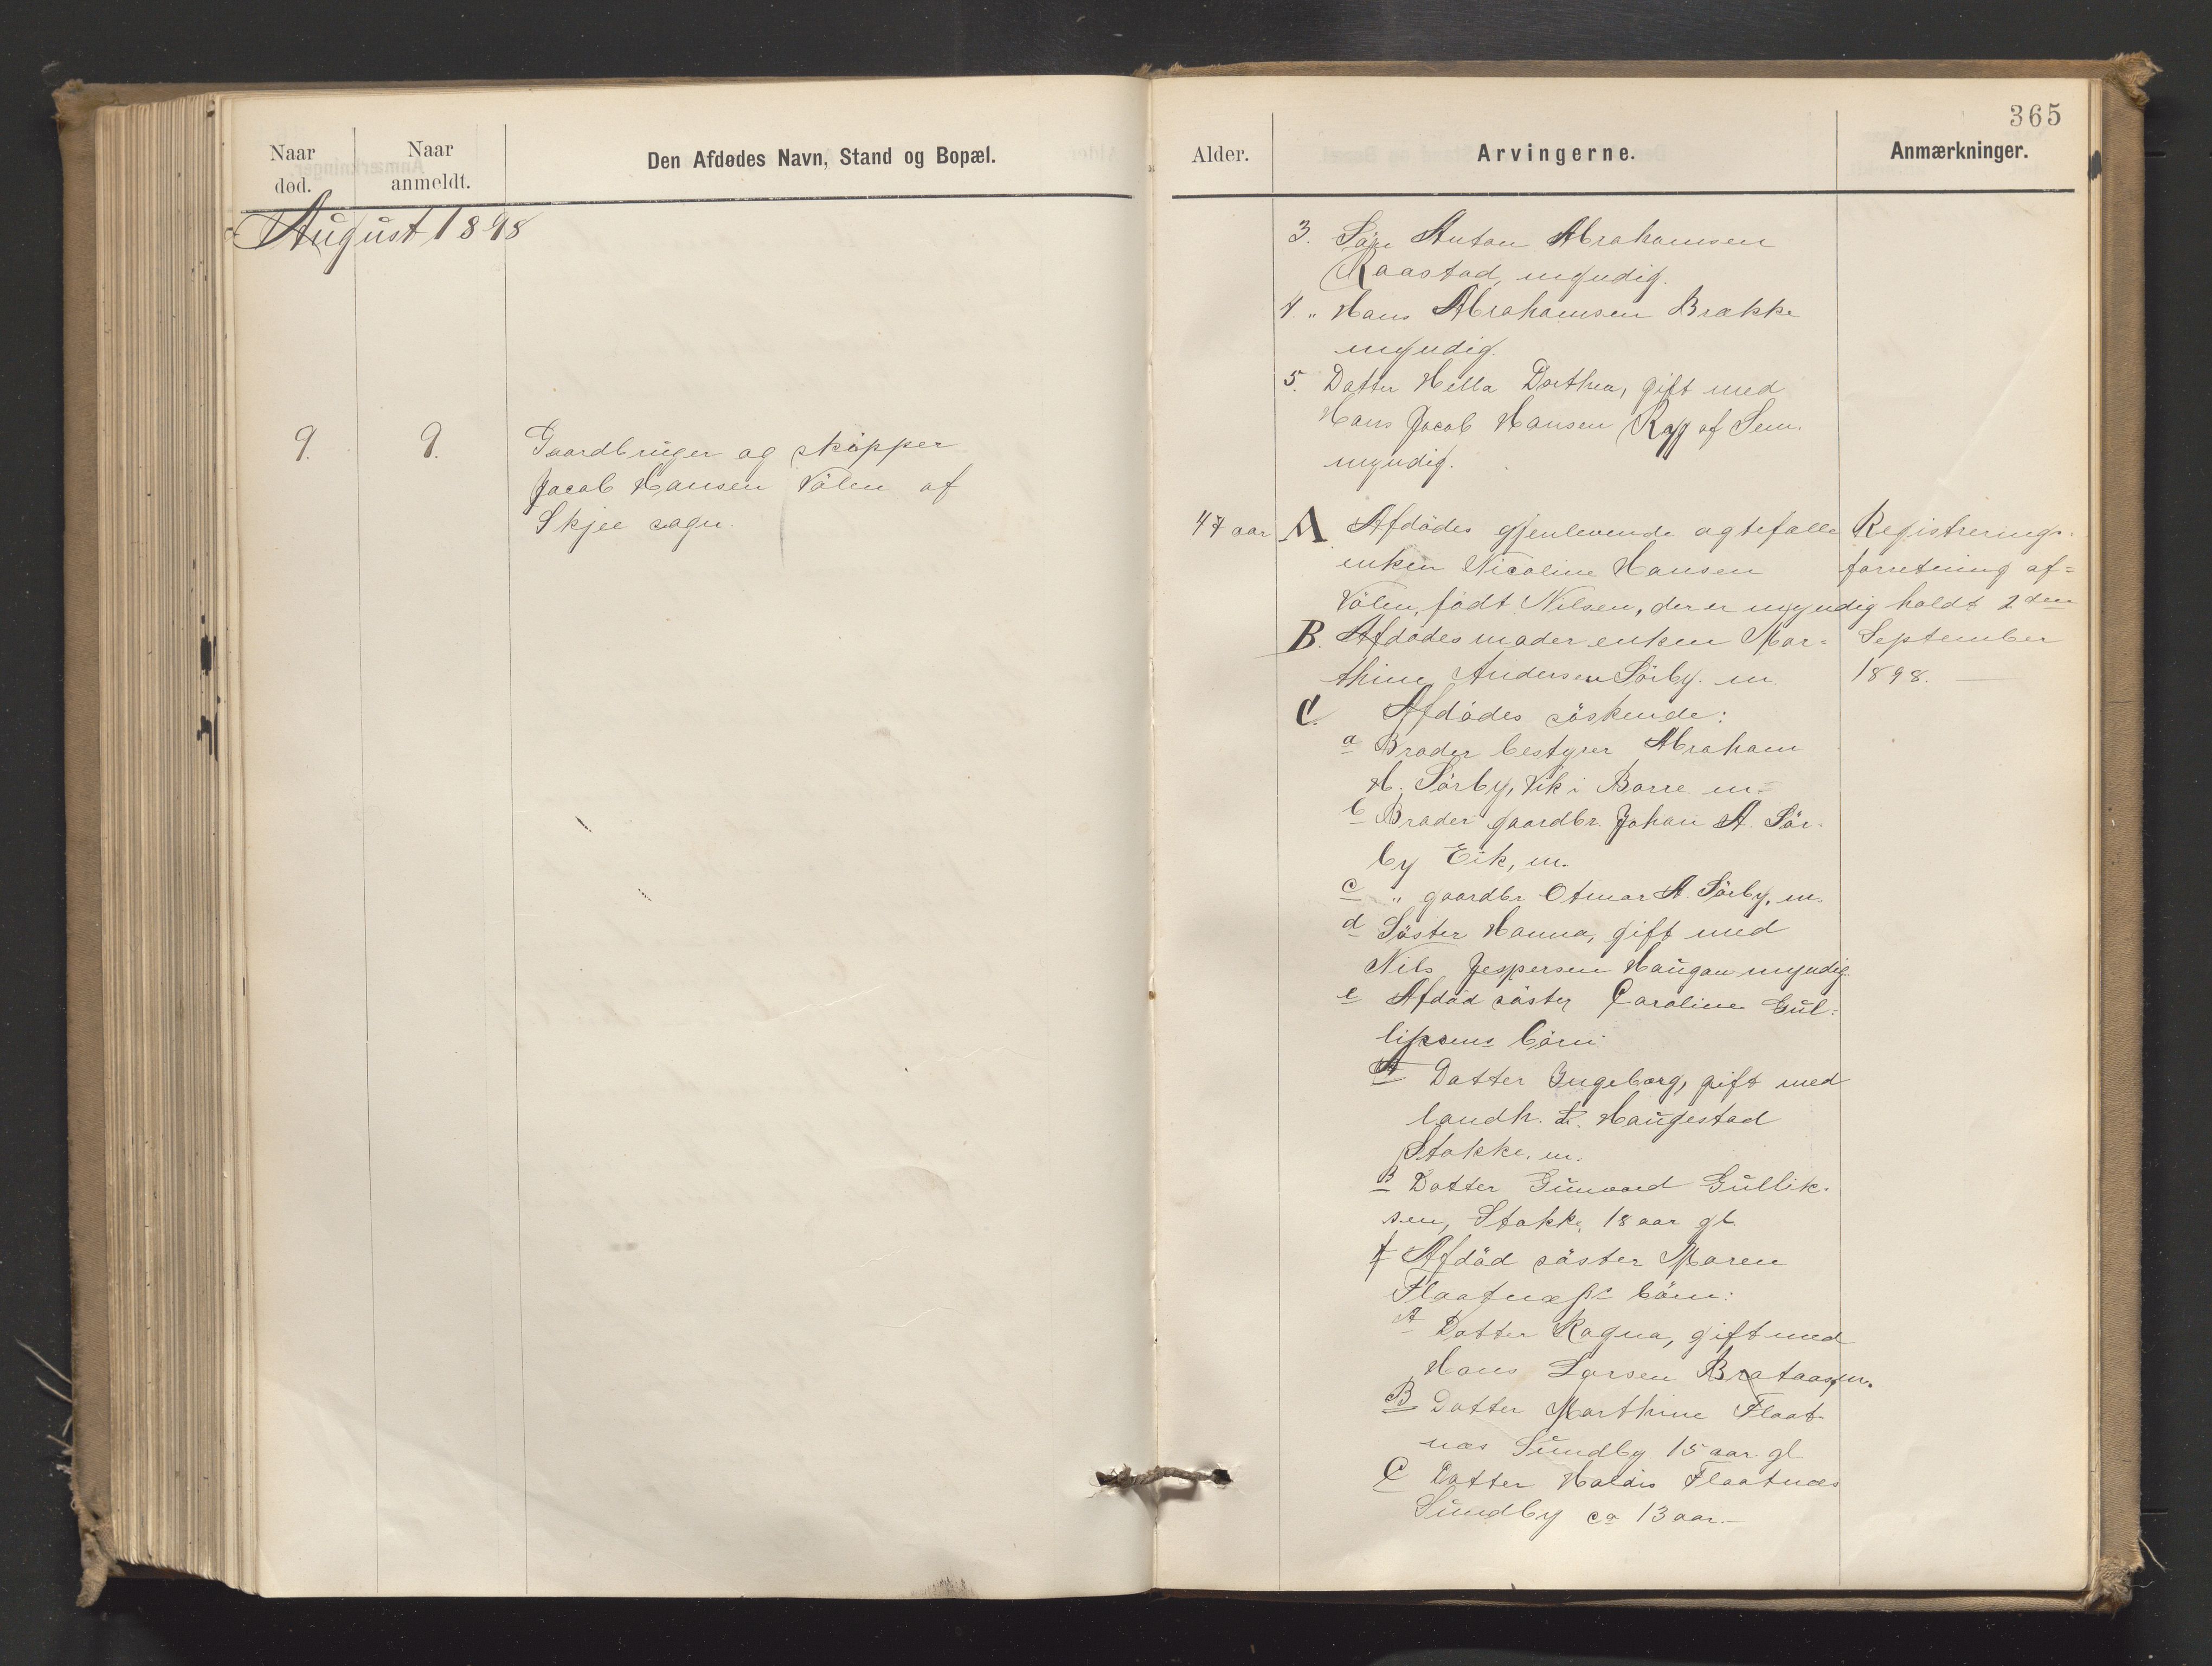 365
Naar død.
Naar anmeldt.
Den Afdødes Navn, Stand og Bopæl.
Alder.
Arvingerne.
Anmærkninger.
August 1898
3. Søn Anton Abrahamsen
Raastad, myndig.
4. " Hans Abrahamsen Brække
myndig.
5. Datter Hella Dorthea, gift med
Hans Jacob Hansen Røg af Sem.
myndig.
9. 9. Gaardbruger og skipper
Jacob Hansen Vølen af
Skjee sogn.
47 aar
A. Afdødes gjenlevende ægtefælle
enken Nicoline Hansen
Vølen, født Nilsen, der er myndig
B. Afdødes moder enken Mar=
thine Andersen Sørby. m.
C. Afdødes søskende:
a Broder bestyrer Abraham
H. Sørby, Vik i Borre m=
b Broder gaardbr. Johan A. Sør-
by Eik, m.
c " gaardbr Otmar A. Sørby, m.
d Søster Hanna, gift med
Nils Jespersen Haugan myndig.
e Afdød søster Caroline Gul=
liksens børn:
A Datter Ingeborg, gift med
landh. Haugestad
Stokke. m.
B Datter Gunvord Gullik-
sen, Stokke, 18 aar gl.
f Afdød søster Maren
Flaatnæss børn:
A Datter Ragna, gift med
Hans Larsen Brataas, m.
B Datter Marthine Flaat-
næs Sundby 15 aar gl
C Datter Haldis Flaatnæs
Sundby ca 13 aar.-
Registrerings-
forretning af=
holdt 2den
September
1898. —